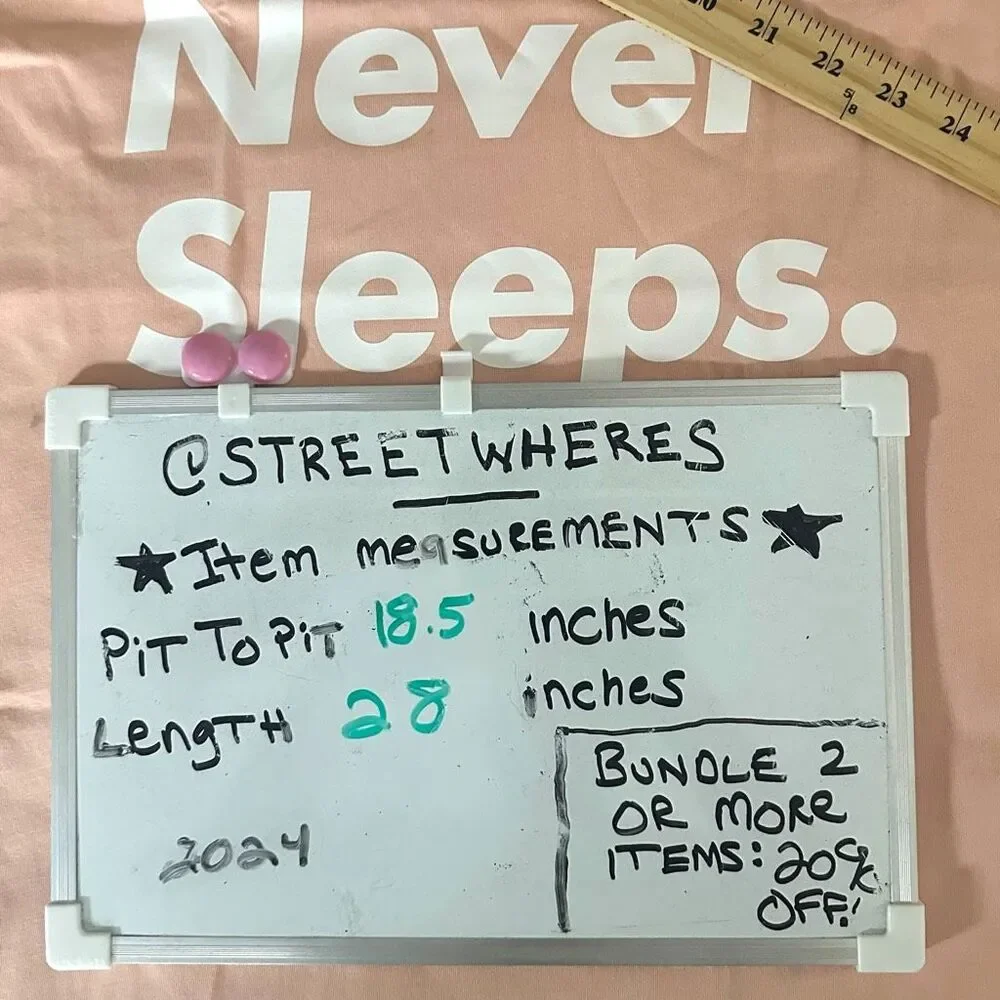 Never
Sleeps.
20 21 22 5/8 23 24
@STREETWHERES
★Item measUREMENTS★
PiT To PiT 18.5 inches
LengTH 28 inches
BUNDLE 2
OR MORE
ITEMS: 20%
OFF!
2024